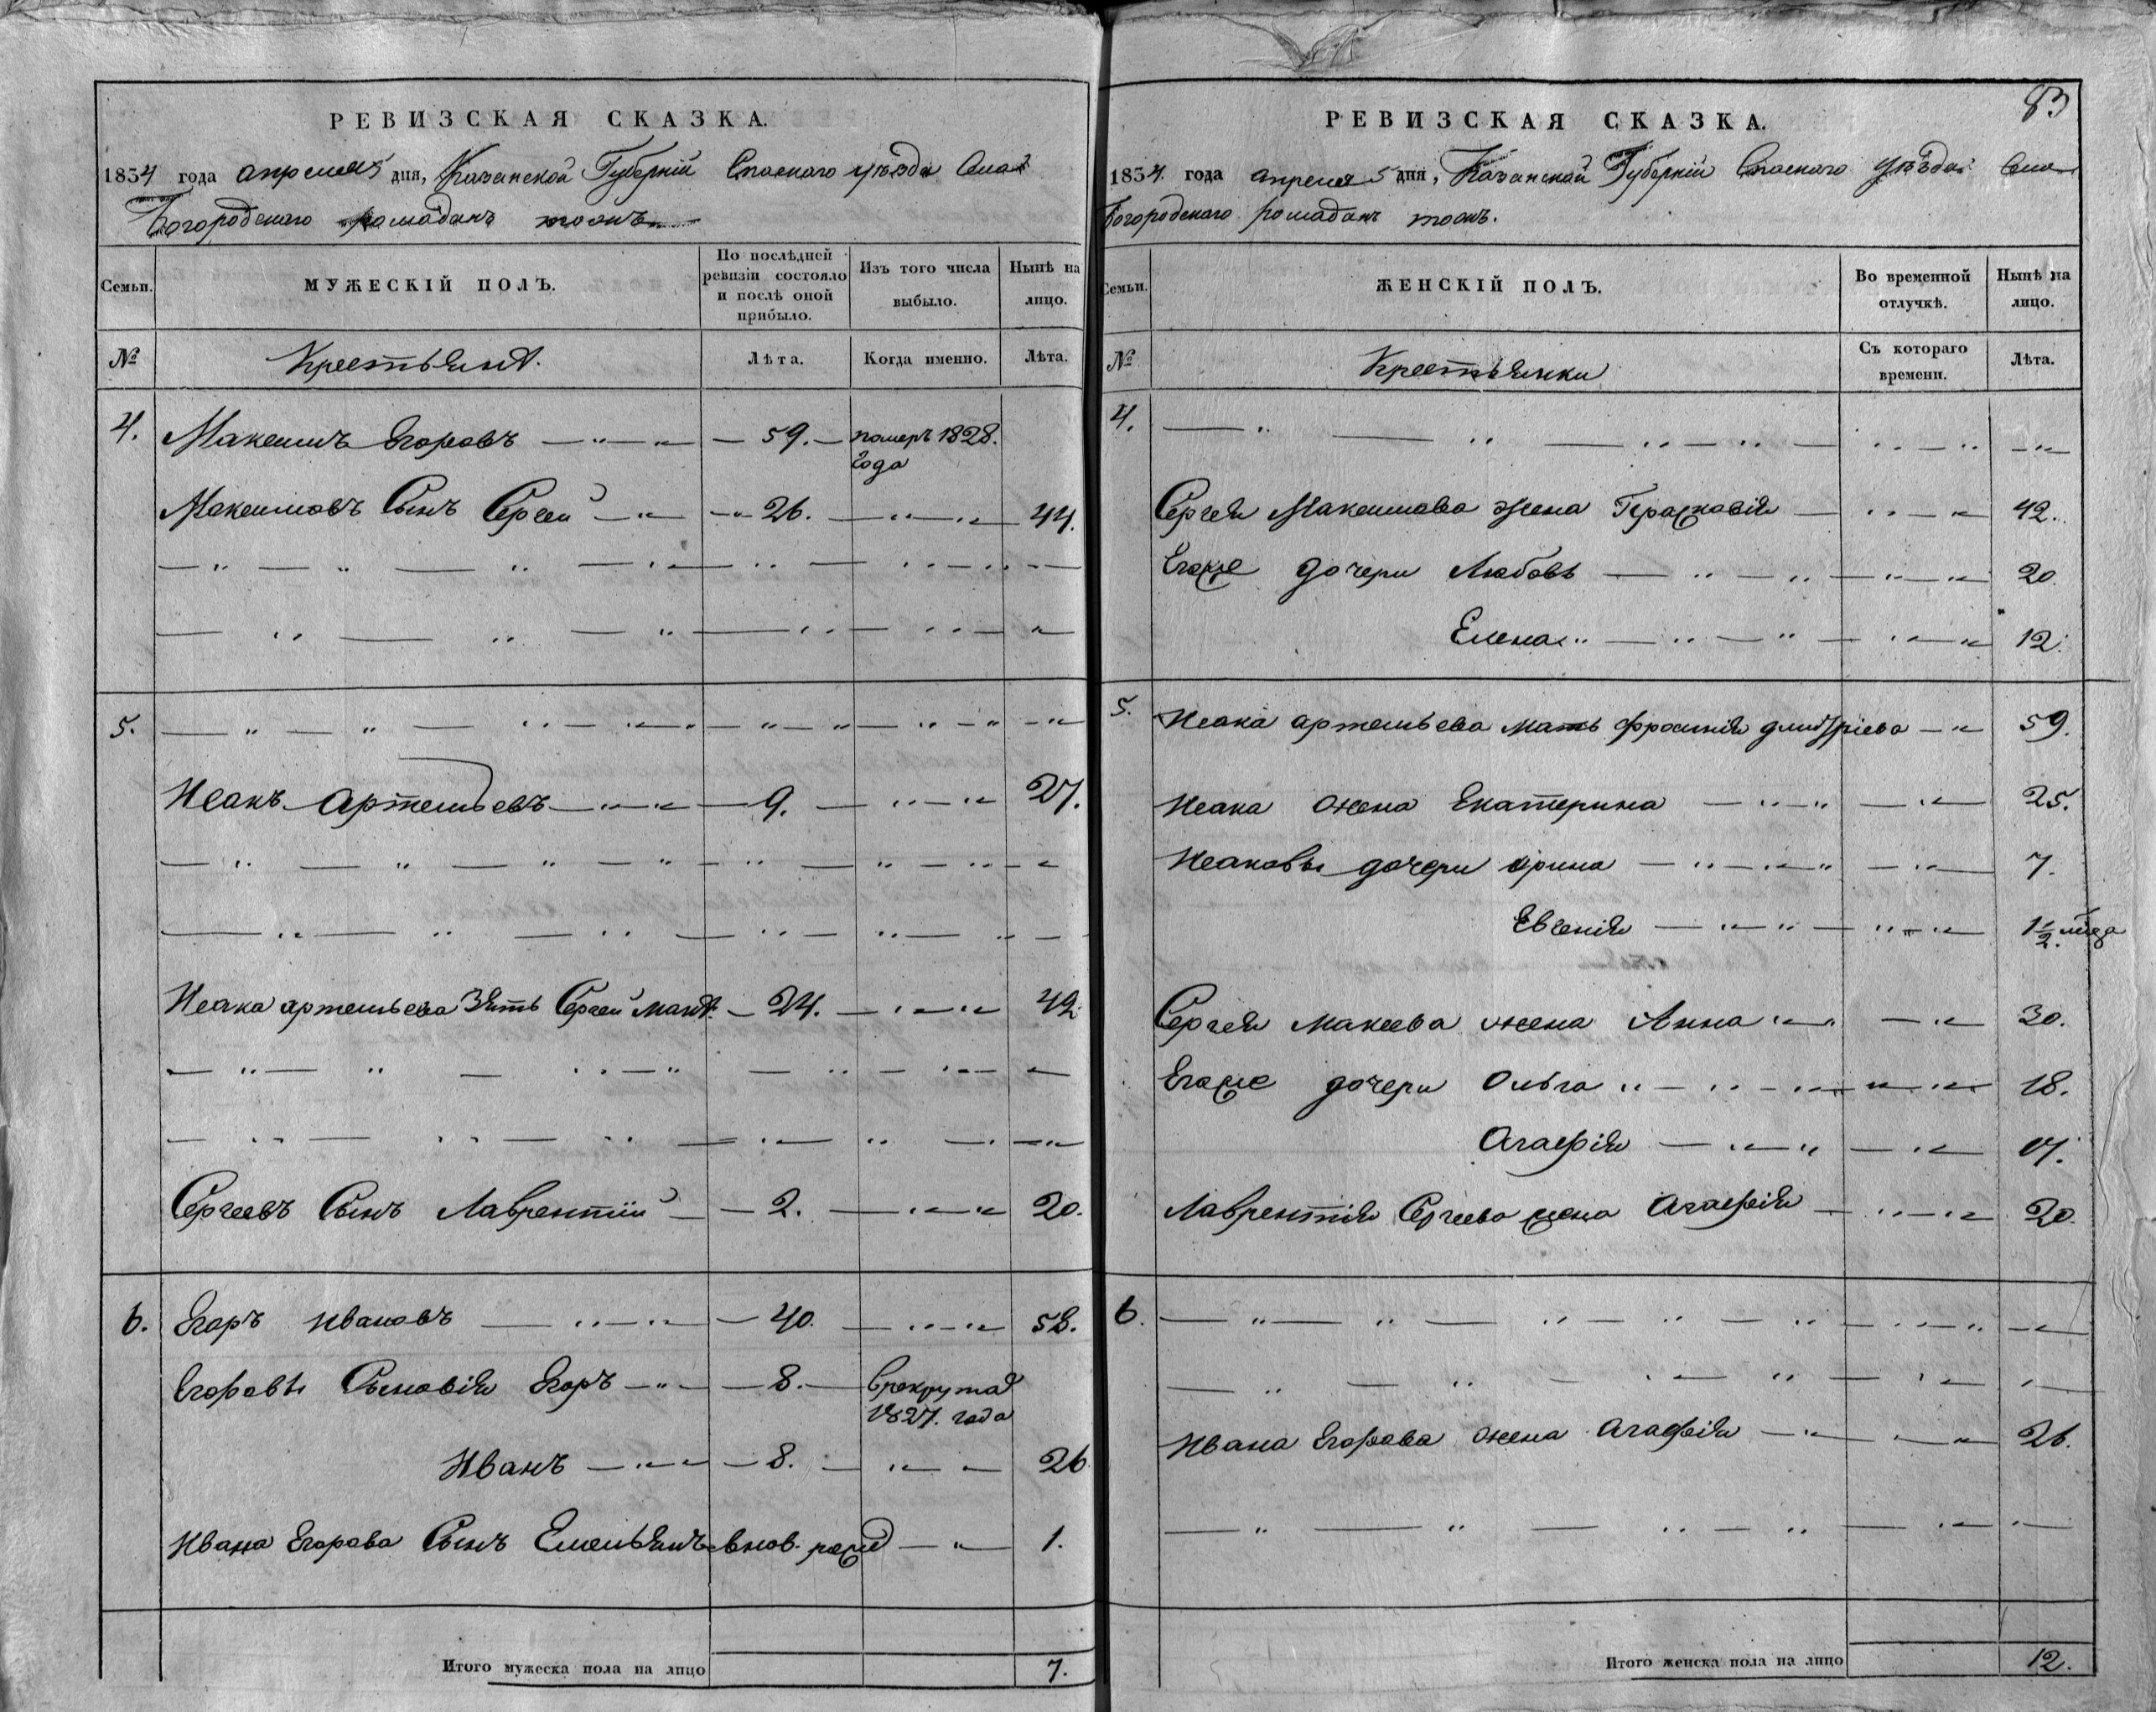 РЕВИЗСКАЯ СКАЗКА.
1834 года апреля 5 дня, Казанской Губернiй Спаского уѣзда Села
Богородскаго рамаданъ тожъ
Семьи.
МУЖЕСКIЙ ПОЛЪ.
По послѣдней ревизiи состояло и послѣ оной прибыло.
Изъ того числа выбыло.
Нынѣ на лицо.
№
Крестьянѣ.
Лѣта.
Когда именно.
Лѣта.
4. Максимъ Егоровъ — 59. — померъ 1828. года
Максимовъ Сынъ Сергей — 26. — 44.
5.
Исакъ Артемьевъ — 9. — 27.
Исака артемьева Зять Сергей — 24. — 42
Сергеевъ Сынъ Лаврентiй — 2. — 20.
6. Егоръ Ивановъ — 40. — 58.
Егоровы Сыновiя Егоръ — 8. — 1827. года
Иванъ — 8. — 26
Ивана Егорова Сынъ Емельянъ внов. рожд — 1.
Итого мужеска пола на лицо 7.
83
РЕВИЗСКАЯ СКАЗКА.
1834. года апреля 5 дня, Казанской Губернiй Спаского уѣзда Села
Богородскаго рамаданъ тожъ.
Семьи.
ЖЕНСКIЙ ПОЛЪ.
Во временной отлучкѣ.
Нынѣ на лицо.
№
Крестьянки
Съ котораго времени.
Лѣта.
4.
Сергея Максимова жена Прасковiя — 42.
Егоже дочери Любовь — 20.
Елена — 12.
5. Исака артемьева мать Фросинiя дмитрiева — 59.
Исака жена Екатерина — 25.
Исаковы дочери Ирина — 7.
Евгенiя — 1 1/2 года
Сергея макеева жена Анна — 30.
Егоже дочери Ольга — 18.
Агафiя — 17.
Лаврентiя Сергеева жена Агафiя — 20.
6.
Ивана Егорова жена Агафiя — 26.
Итого женска пола на лицо 12.